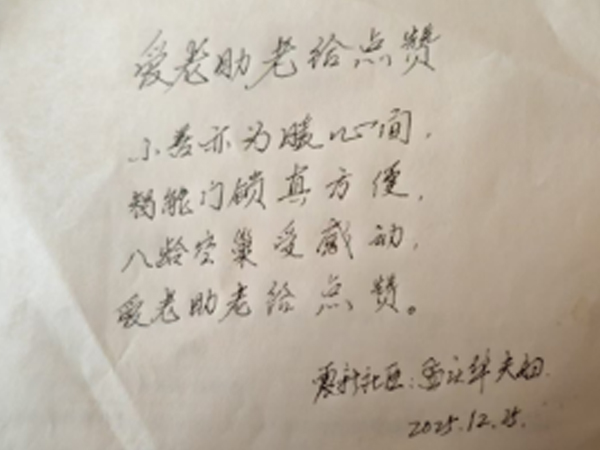 爱老助老给点赞
小善亦为暖心间,
智能门锁真方便,
八龄空巢受感动,
爱老助老给点赞。
社区:夫妇
2025.12.25.